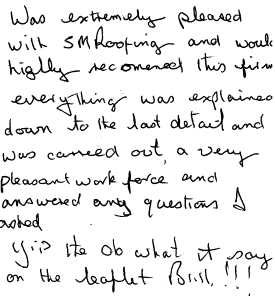 Was extremely pleased
with SM Roofing and would
highly recomened this firm
everything was explained
down to the last detail and
was carried out, a very
pleasant work force and
answered any questions I
asked
it ob what it say
on the leaflet Brill. !!!